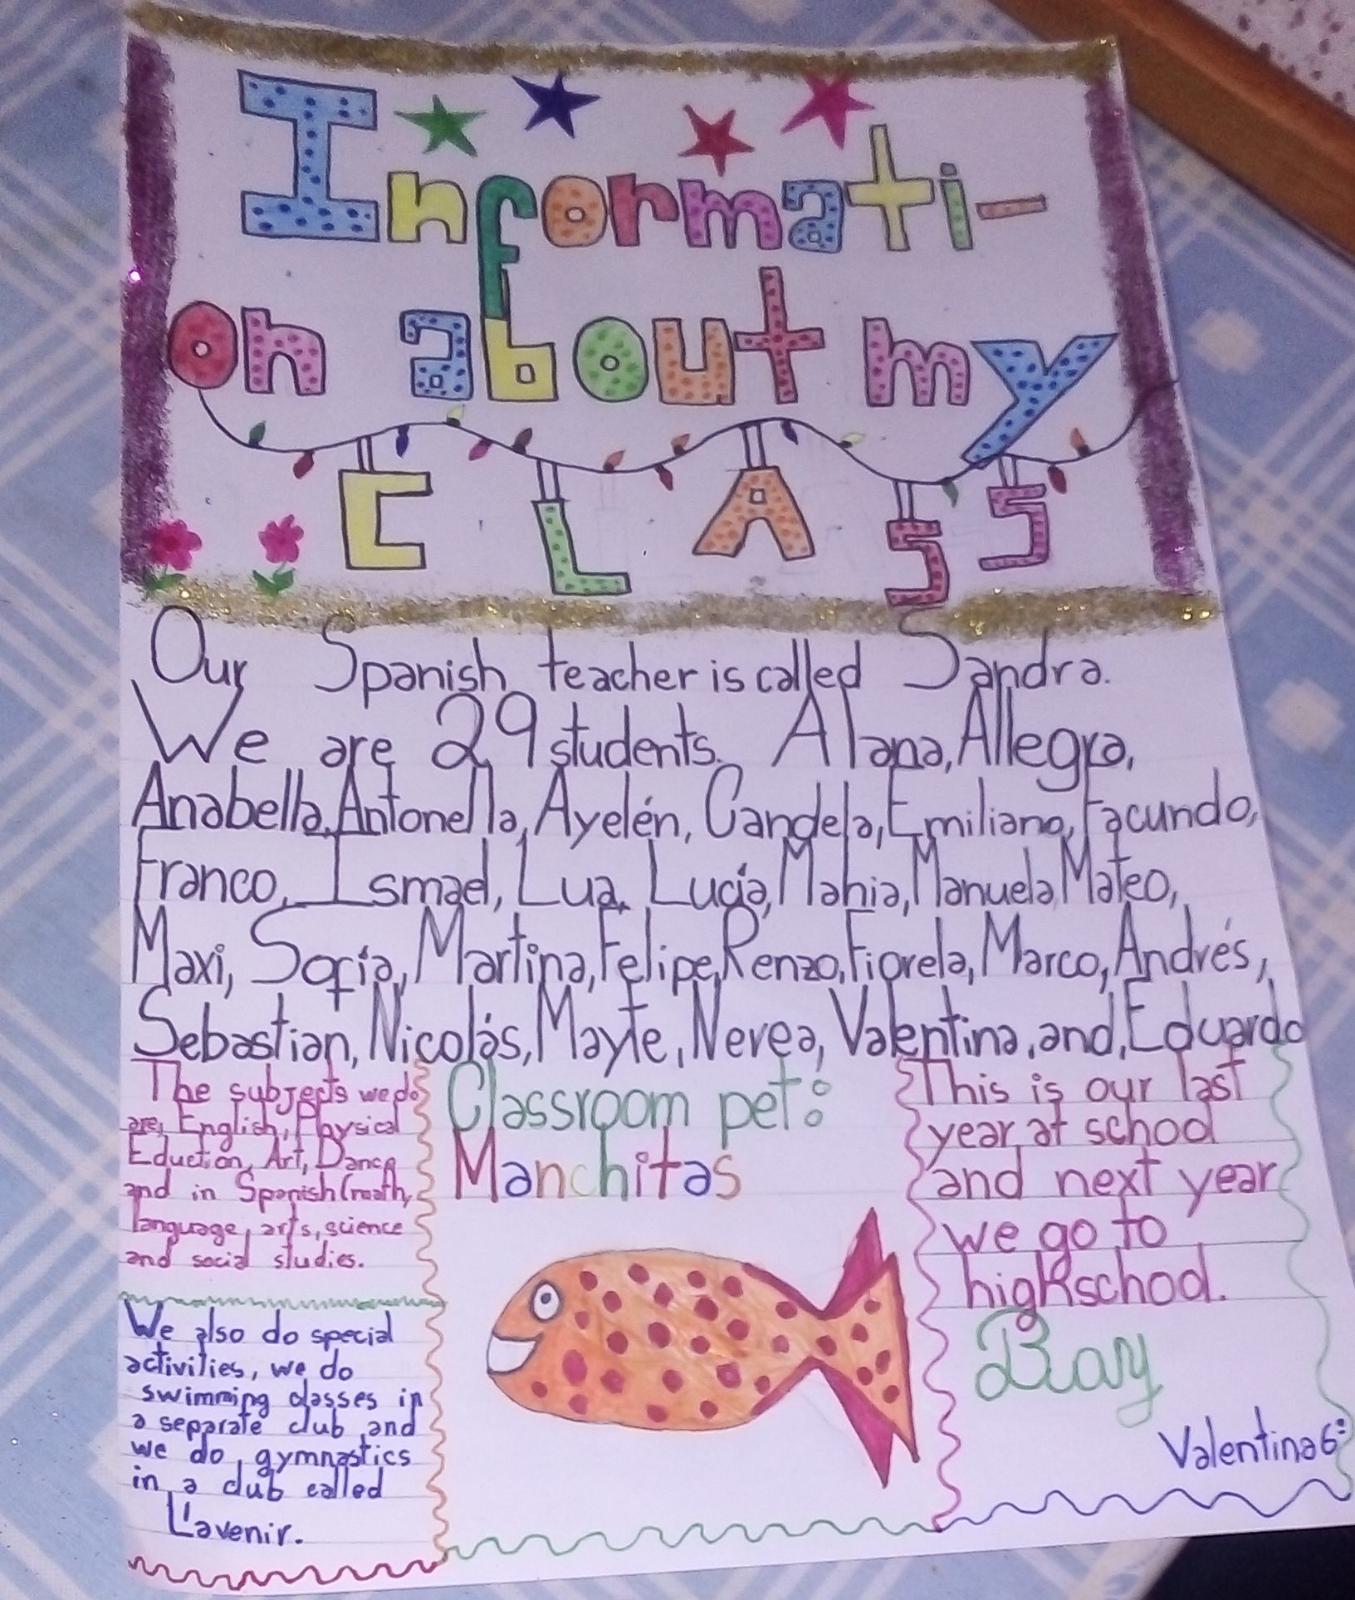 Informati-
on about my
CLASS
Our Spanish teacher is called Sandra.
We are 29 students. Alana, Allegra,
Anabella, Antonella, Ayelén, Candela, Emiliano, Facundo,
Franco, Ismael, Lua, Lucía, Mahia, Manuela, Mateo,
Maxi, Sofía, Martina, Felipe, Renzo, Fiorela, Marco, Andrés,
Sebastian, Nicolás, Mayte, Nerea, Valentina, and, Eduardo
The subjects we do
are, English, Physical
Eduction, Art, Dance
and in Spanish (math,
language, arts, science
and social studies.
We also do special
activities, we do
swimming classes in
a separate club and
we do gymnastics
in a club called
L'avenir.
Classroom pet:
Manchitas
This is our last
year at school
and next year
we go to
highschool.
Bay
Valentina 6º